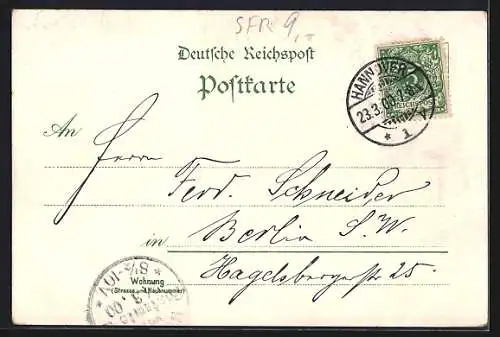 SFR 9,-
Deutsche Reichspost
Postkarte
HANNOVER
23.3.00.
* 1
An
Herrn
Ferd. Schneider
in Berlin S.W.
Hagelsbergerstr 25.
Wohnung
(Strasse und Hausnummer)